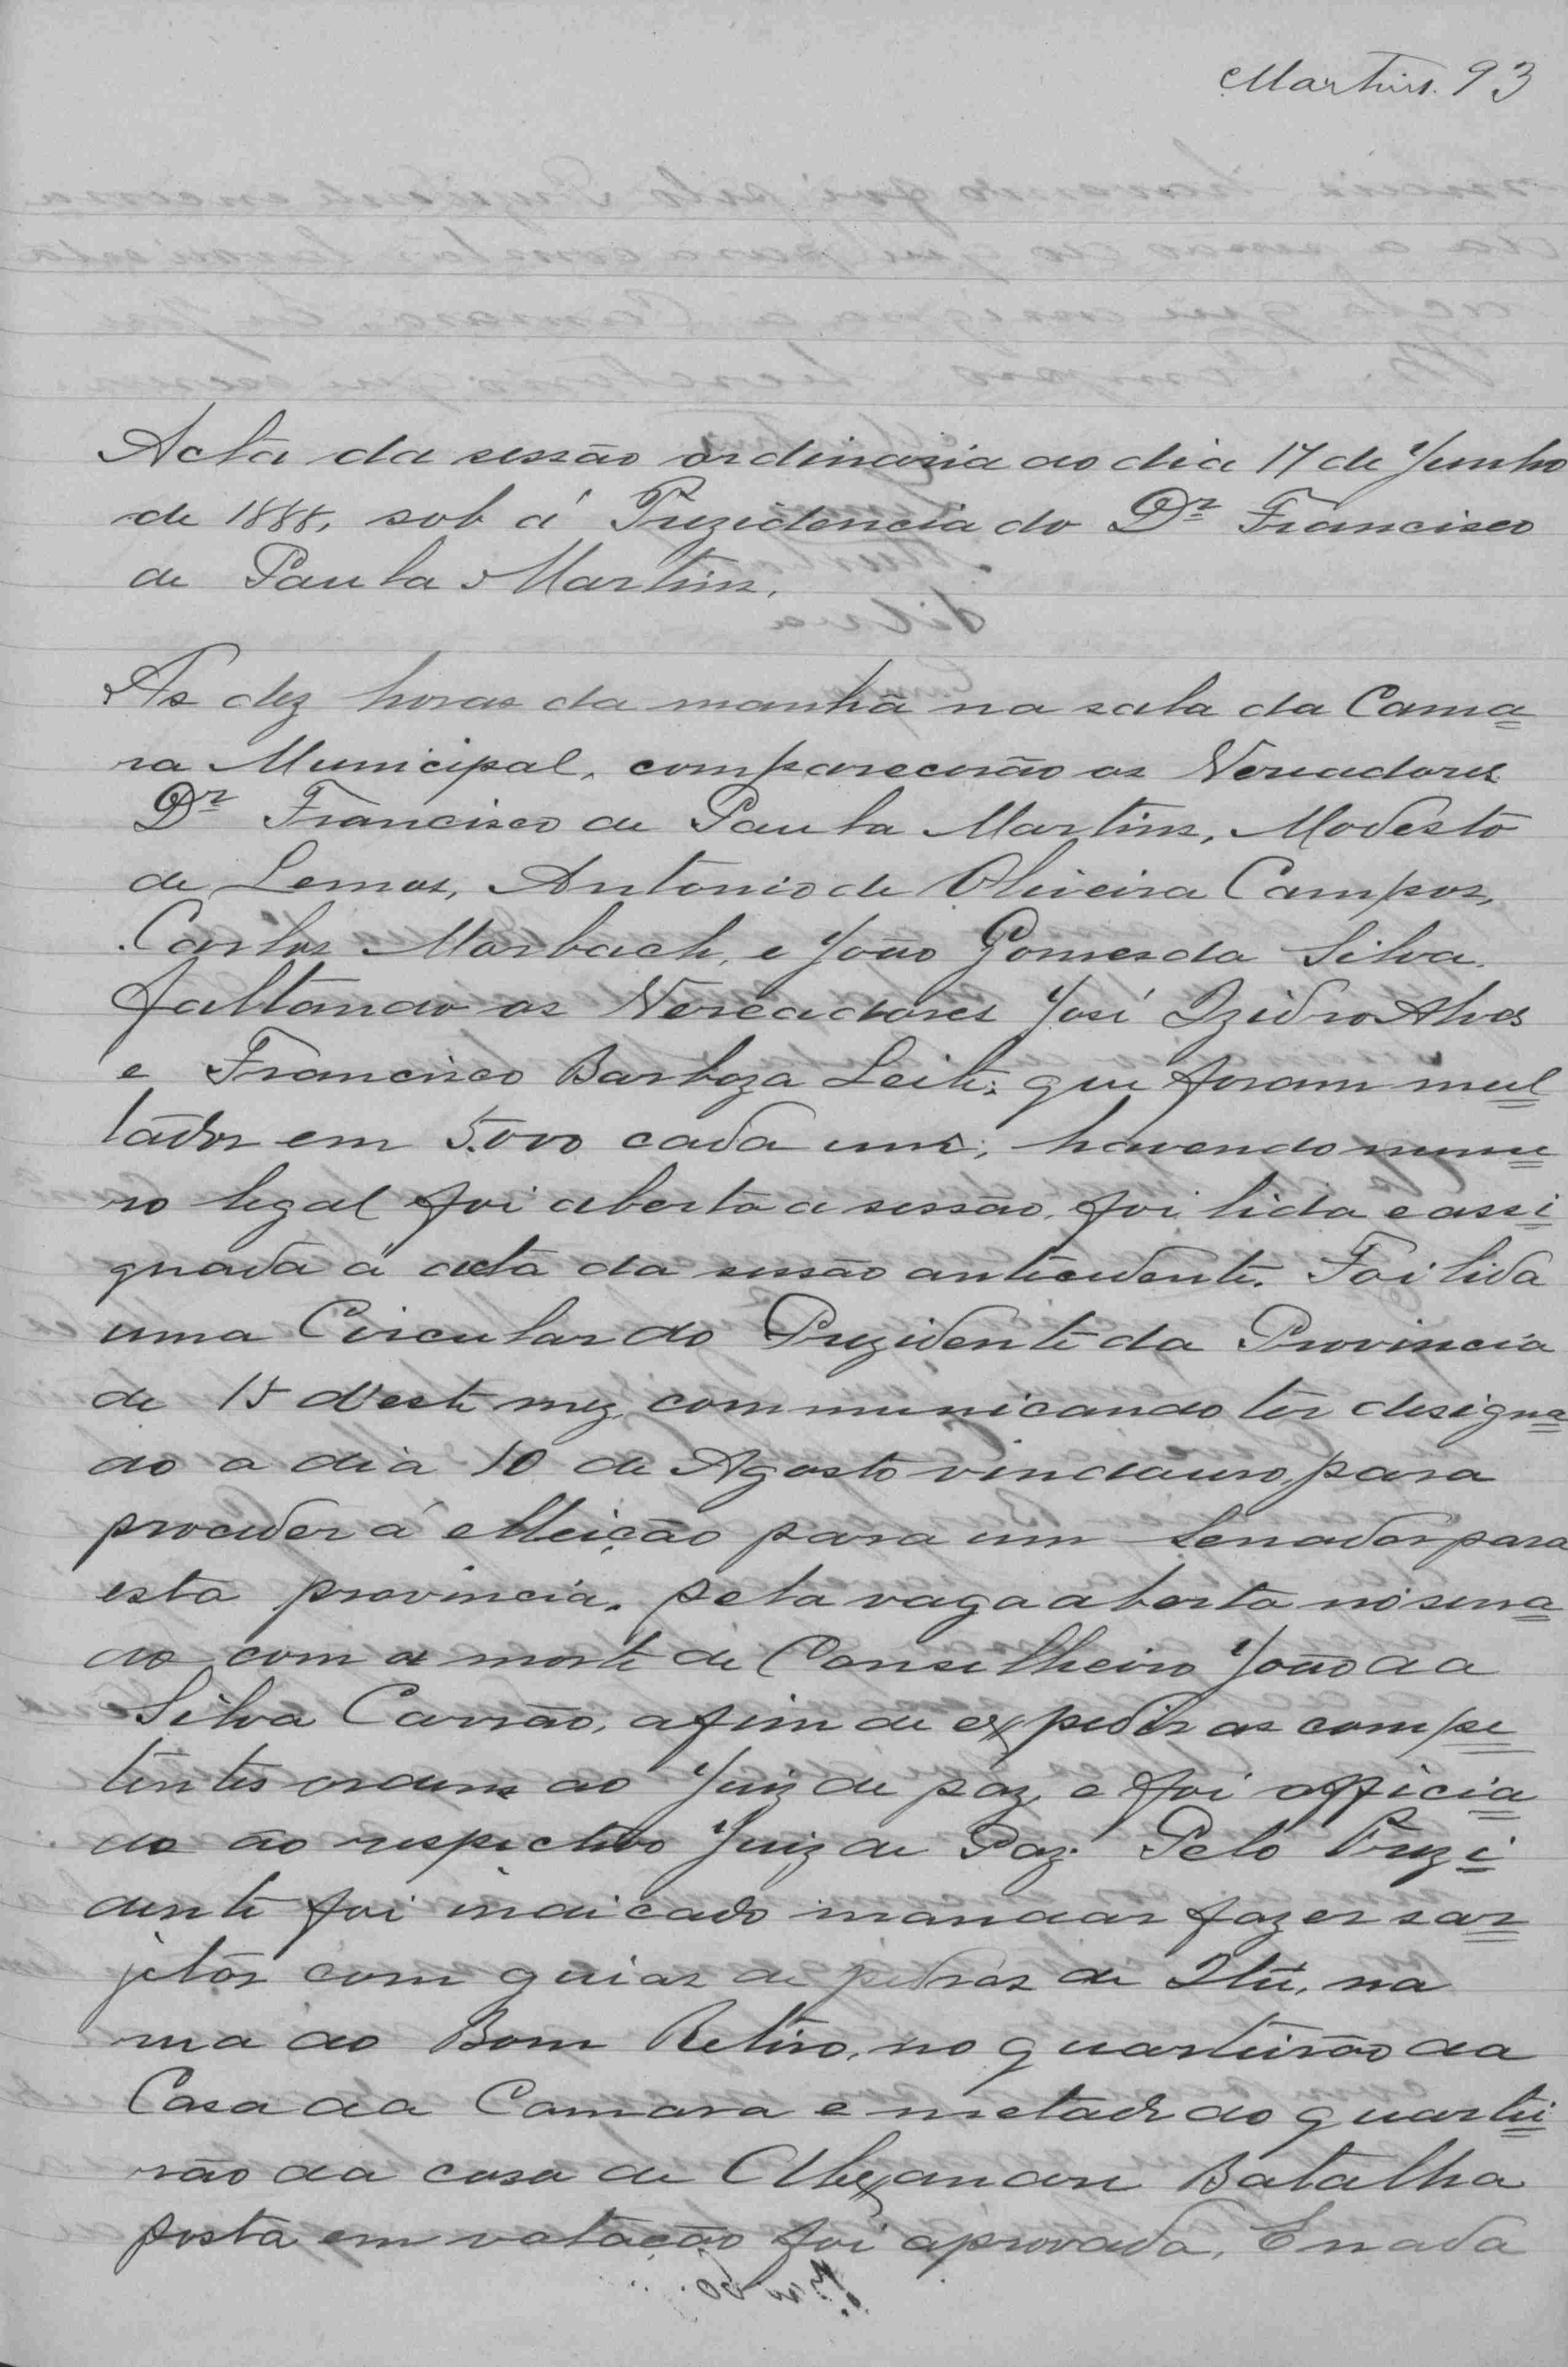 Martins. 93
Acta da sessão ordinaria do dia 17 de Junho
de 1888, sob á Prezidencia do Dr Francisco
de Paula Martins.
As dez horas da manhã na sala da Cama
ra Municipal, comparecerão os Vereadores
Dr Francisco de Paula Martins, Modesto
de Lemos, Antonio de Oliveira Campos,
Carlos Marbach, e João Gomes da Silva.
faltando os Vereadores José Izidro Alves
e Francisco Barboza Leite; que foram mul
tados em 5.000 cada um; havendo nume
ro legal foi aberta a sessão, foi lida e assi
gnada a acta da sessão antecedente. Foi lida
uma Circular do Prezidente da Provincia
de 15 d'este mez, communicando ter designa
do o dia 10 de Agosto vindouro, para
proceder á elleição para um Senador para
esta provincia, pela vaga aberta no sena
do com a morte de Conselheiro João da
Silva Carrão, afim de expedir as compe
tentes ordens ao Juiz de paz, e foi officia
do ao respectivo Juiz de Paz. Pelo Prezi
dente foi indicado mandar fazer sar
jetas com guias de pedras de Itú, na
rua do Bom Retiro, no quarteirão da
Casa da Camara e metade do quartei
rão da casa de Alexandre Batalha
posta em votação foi aprovada. E nada